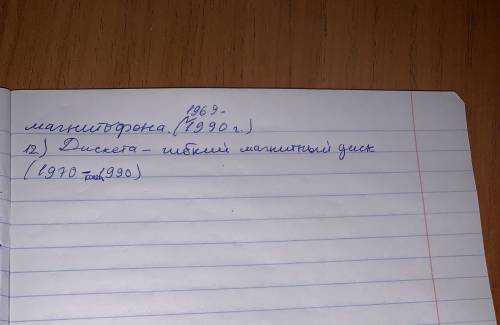 1969г.
магнитофона. (1990 г.)
12) Дискета – гибкий магнитный диск
(1970 – 1990)